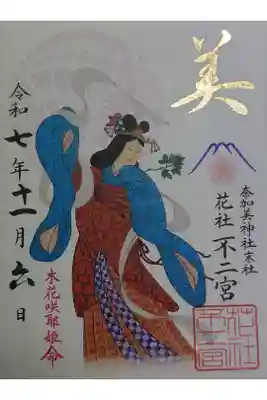 美
奈加美神社末社
花社不二宮
令和七年十一月六日
木花咲耶姫命